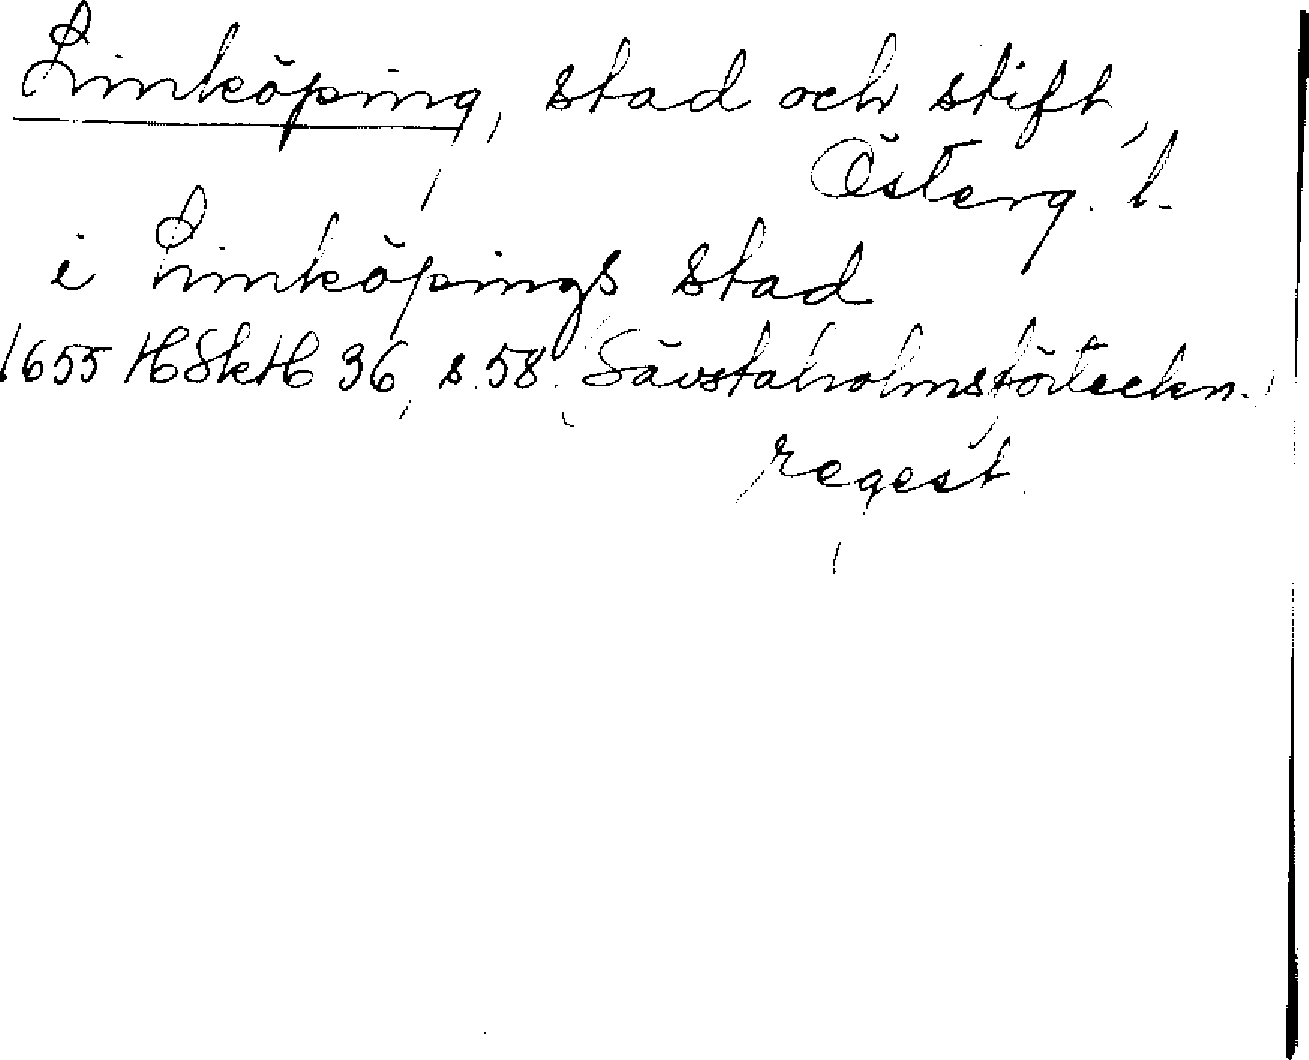 Linköping, stad och stift,
Österg. l.
i Linköpings stad
1655 HSkH 36, s. 58. Sävstaholmsförteckn.
regest